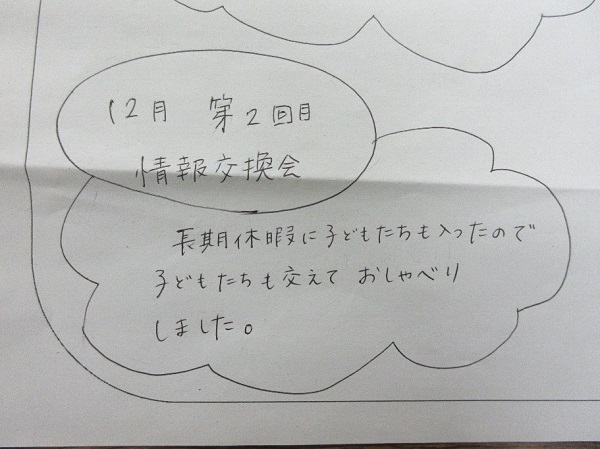 12月 第2回目
情報交換会
長期休暇に子どもたちも入ったので
子どもたちも交えて おしゃべり
しました。